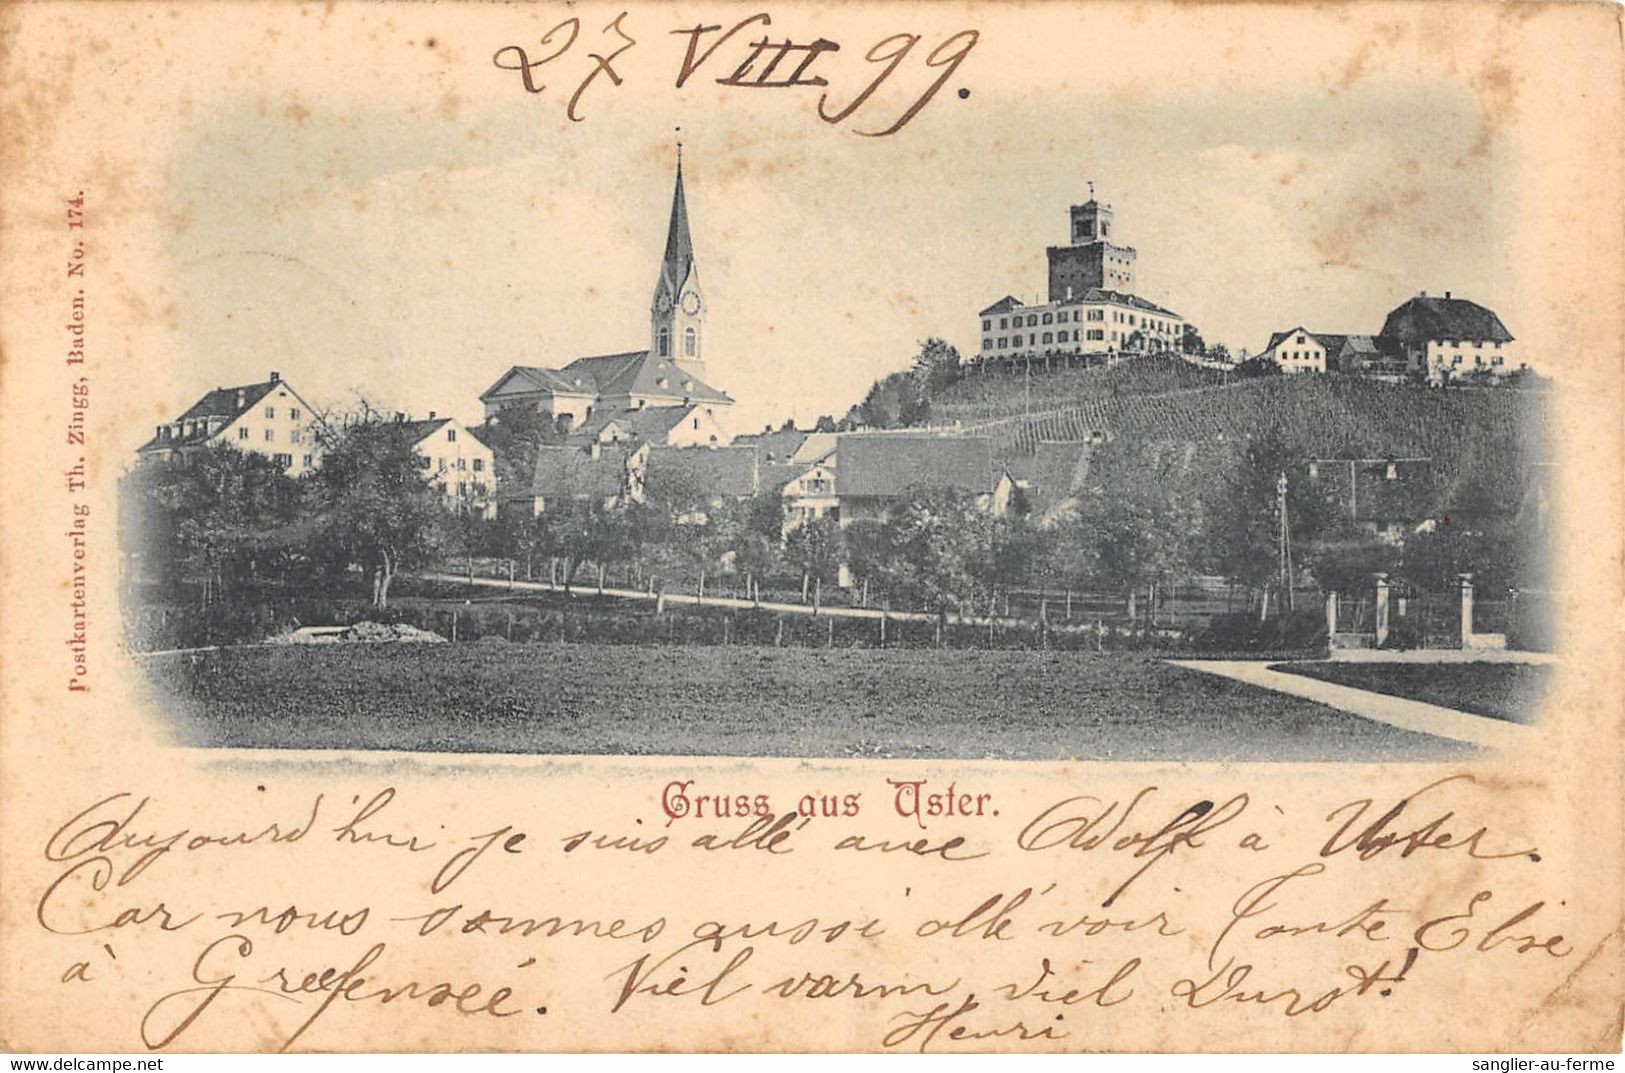 27 VIII 99.
Postkartenverlag Th. Zingg, Baden. No. 174.
Gruss aus Uster.
Aujourd'hui je suis allé avec Adolf à Uster.
Car nous sommes aussi allé voir Tante Elise
à Greefensée. Viel varm, viel Durst!
Henri
Tous droits réservés
sanglier-au-ferme